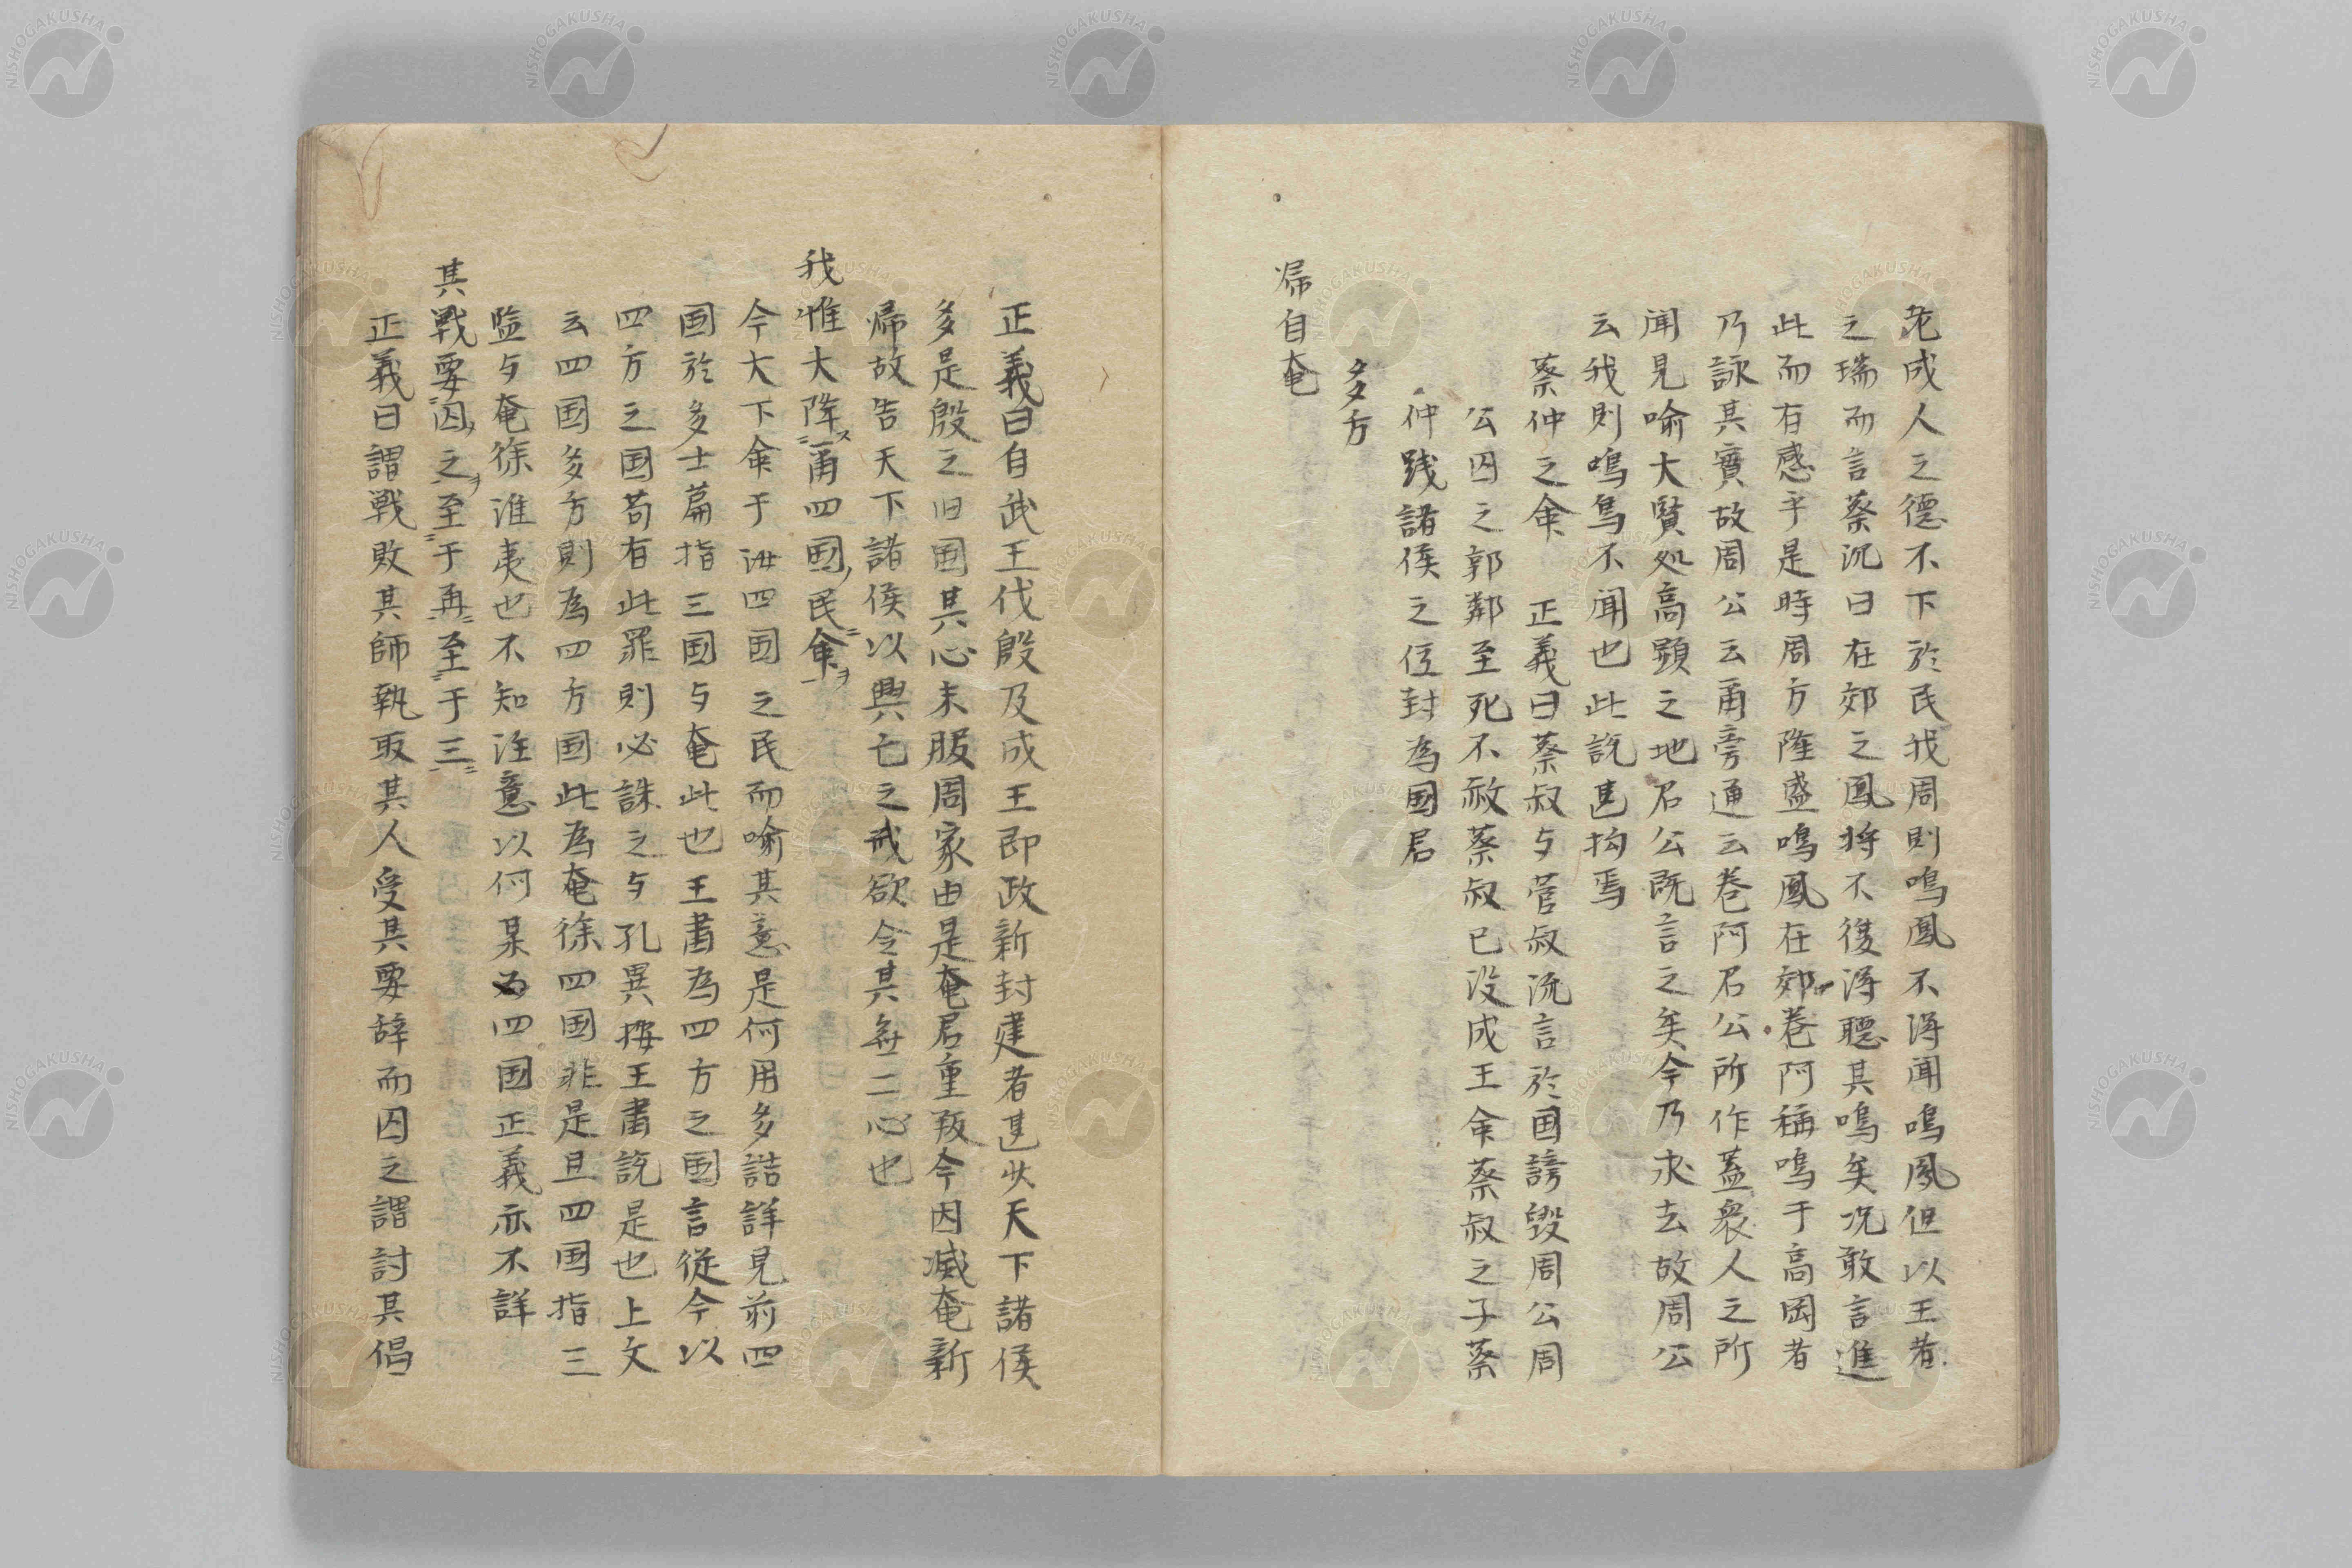 老成人之德不下於民我周則鳴鳳不得聞鳴鳳但以王者
之瑞而言蔡沉曰在郊之鳳将不復得聴其鳴矣况敢言進
此而有感乎是時周方隆盛鳴鳳在郊巻阿稱鳴于高岡者
乃詠其實故周公云甬旁通云巻阿召公所作蓋衆人之所
聞見喻大賢処高顕之地召公既言之矣今乃求去故周公
云我則鳴鳥不聞也此説甚拘焉
蔡仲之命　正義曰蔡叔与菅叔流言於国謗毀周公周
公囚之郭鄰至死不赦蔡叔已没成王命蔡叔之子蔡
仲践諸侯之位封為國君
多方
帰自奄
正義曰自武王伐殷及成王即政新封建者甚少天下諸侯
多是殷之旧国其心未服周家由是奄君重叛今因滅奄新
帰故告天下諸侯以興亡之戒欲令其無二心也
我惟大降ス甬四國ノ民命ヲ
今大下命于汝四国之民而喻其意是何用多誥詳見前四
国於多士篇指三国与奄此也王肅為四方之国言従今以
四方之国苟有此罪則必誅之与孔異按王肅説是也上文
云四国多方則為四方国此為奄徐四国非是且四国指三
監与奄徐淮夷也不知注意以何某為四国正義亦不詳
其戰要囚ノ之ヲ至于再至于三
正義曰謂戰敗其師執取其人受其要辞而囚之謂討其倡
NISHOGAKUSHA